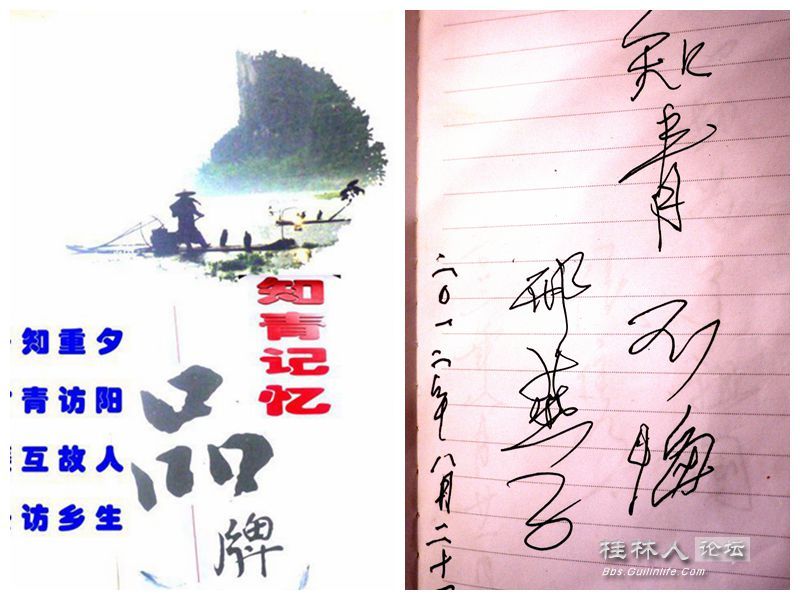 知青记忆
品牌
夕阳人生
重访故乡
知青互访
知青不悔
邢燕子
二〇一二年八月二十
桂林人论坛
Bbs.Guilinlife.Com